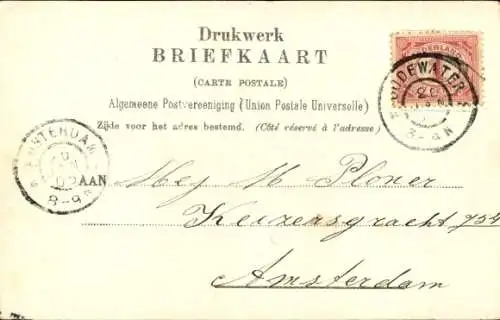 Drukwerk
BRIEFKAART
(CARTE POSTALE)
Algemeene Postvereeniging (Union Postale Universelle)
Zijde voor het adres bestemd. (Côté réservé à l'adresse)
OUDEWATER
8-9N
AMSTERDAM
8-9N
AAN Mej M Ploner
Keizersgracht 754
Amsterdam